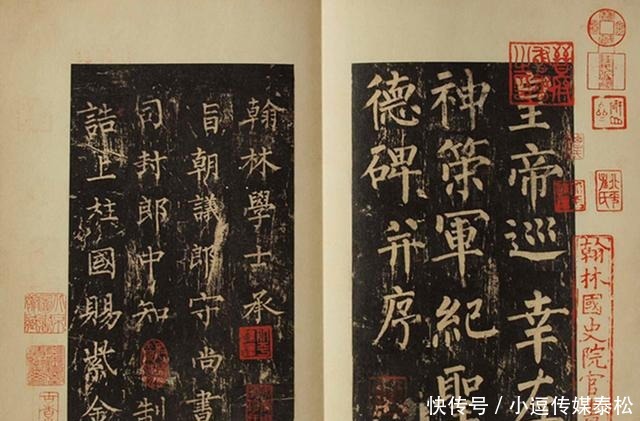 皇帝巡幸左
神策軍紀聖
德碑并序
翰林國史院官
翰林學士承
旨朝議郎守尚書
司封郎中知制
誥上柱國賜紫金
快传号 / 小逗传媒泰松